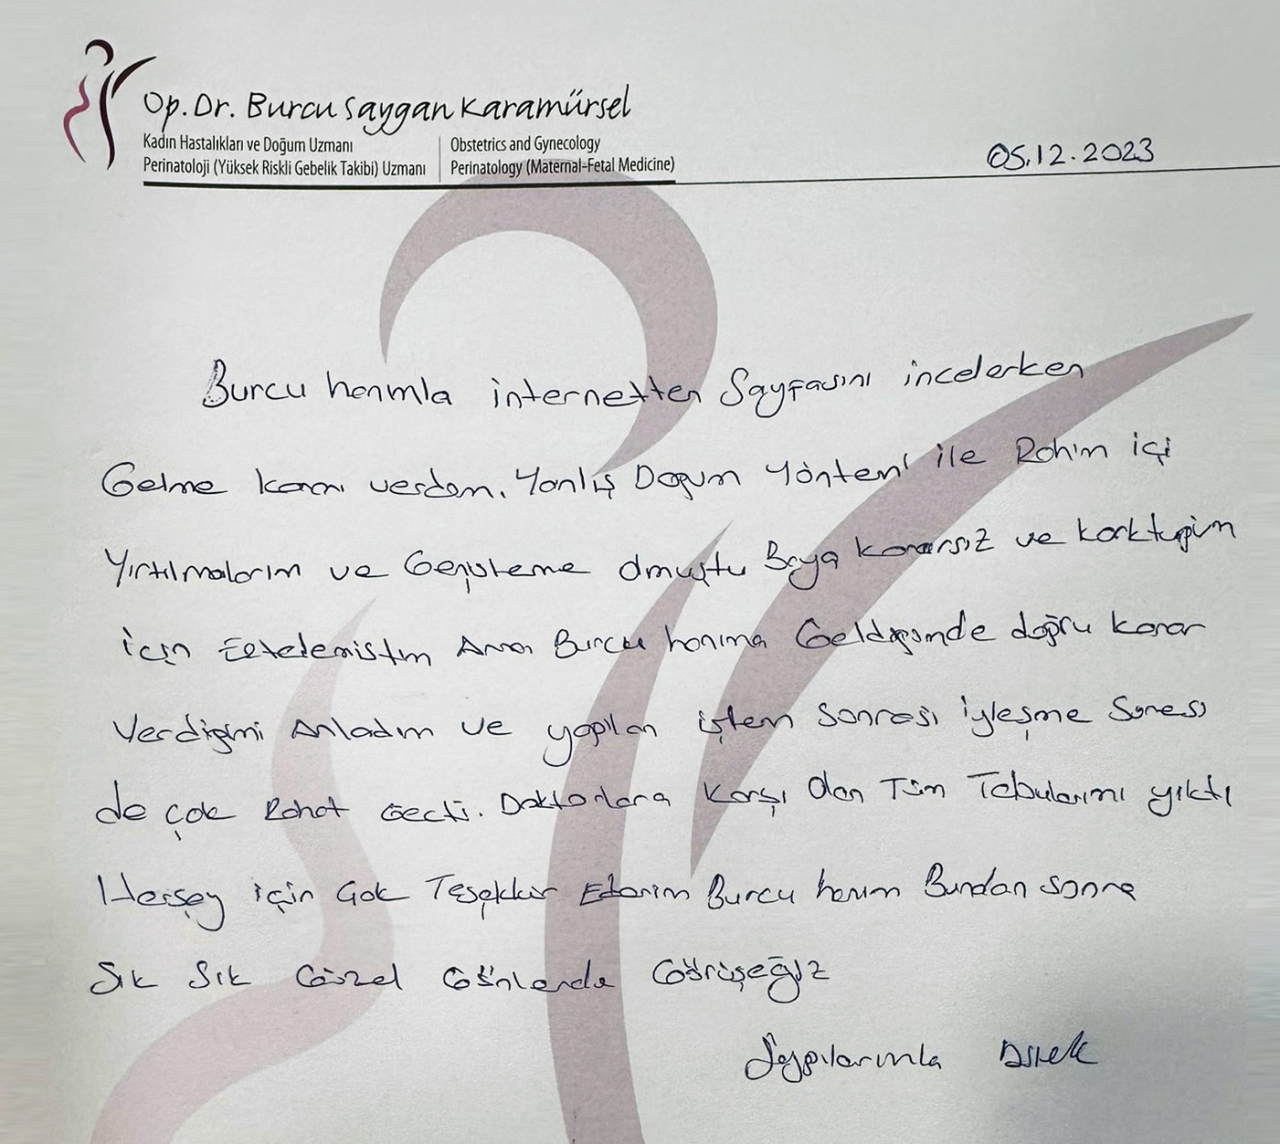 Op. Dr. Burcu Saygan Karamürsel
Kadın Hastalıkları ve Doğum Uzmanı
Perinatoloji (Yüksek Riskli Gebelik Takibi) Uzmanı
Obstetrics and Gynecology
Perinatology (Maternal-Fetal Medicine)
05.12.2023
Burcu hanımla internetten Sayfasını incelerken
Gelme kararı verdim. Yanlış Doğum Yöntemi ile Rahim içi
Yırtılmalarım ve Genişleme olmuştu Baya kararsız ve korktuğum
için Ertelemiştim Ama Burcu hanıma Geldiğimde doğru karar
Verdiğimi Anladım ve yapılan işlem sonrası iyleşme Süresi
de çok Rahat Geçti. Doktorlara Karşı Olan Tüm Tabularımı yıktı
Herşey için Çok Teşekkür Ederim Burcu hanım Bundan sonra
Sık Sık Güzel Günlerde Görüşeğiz
Saygılarımla